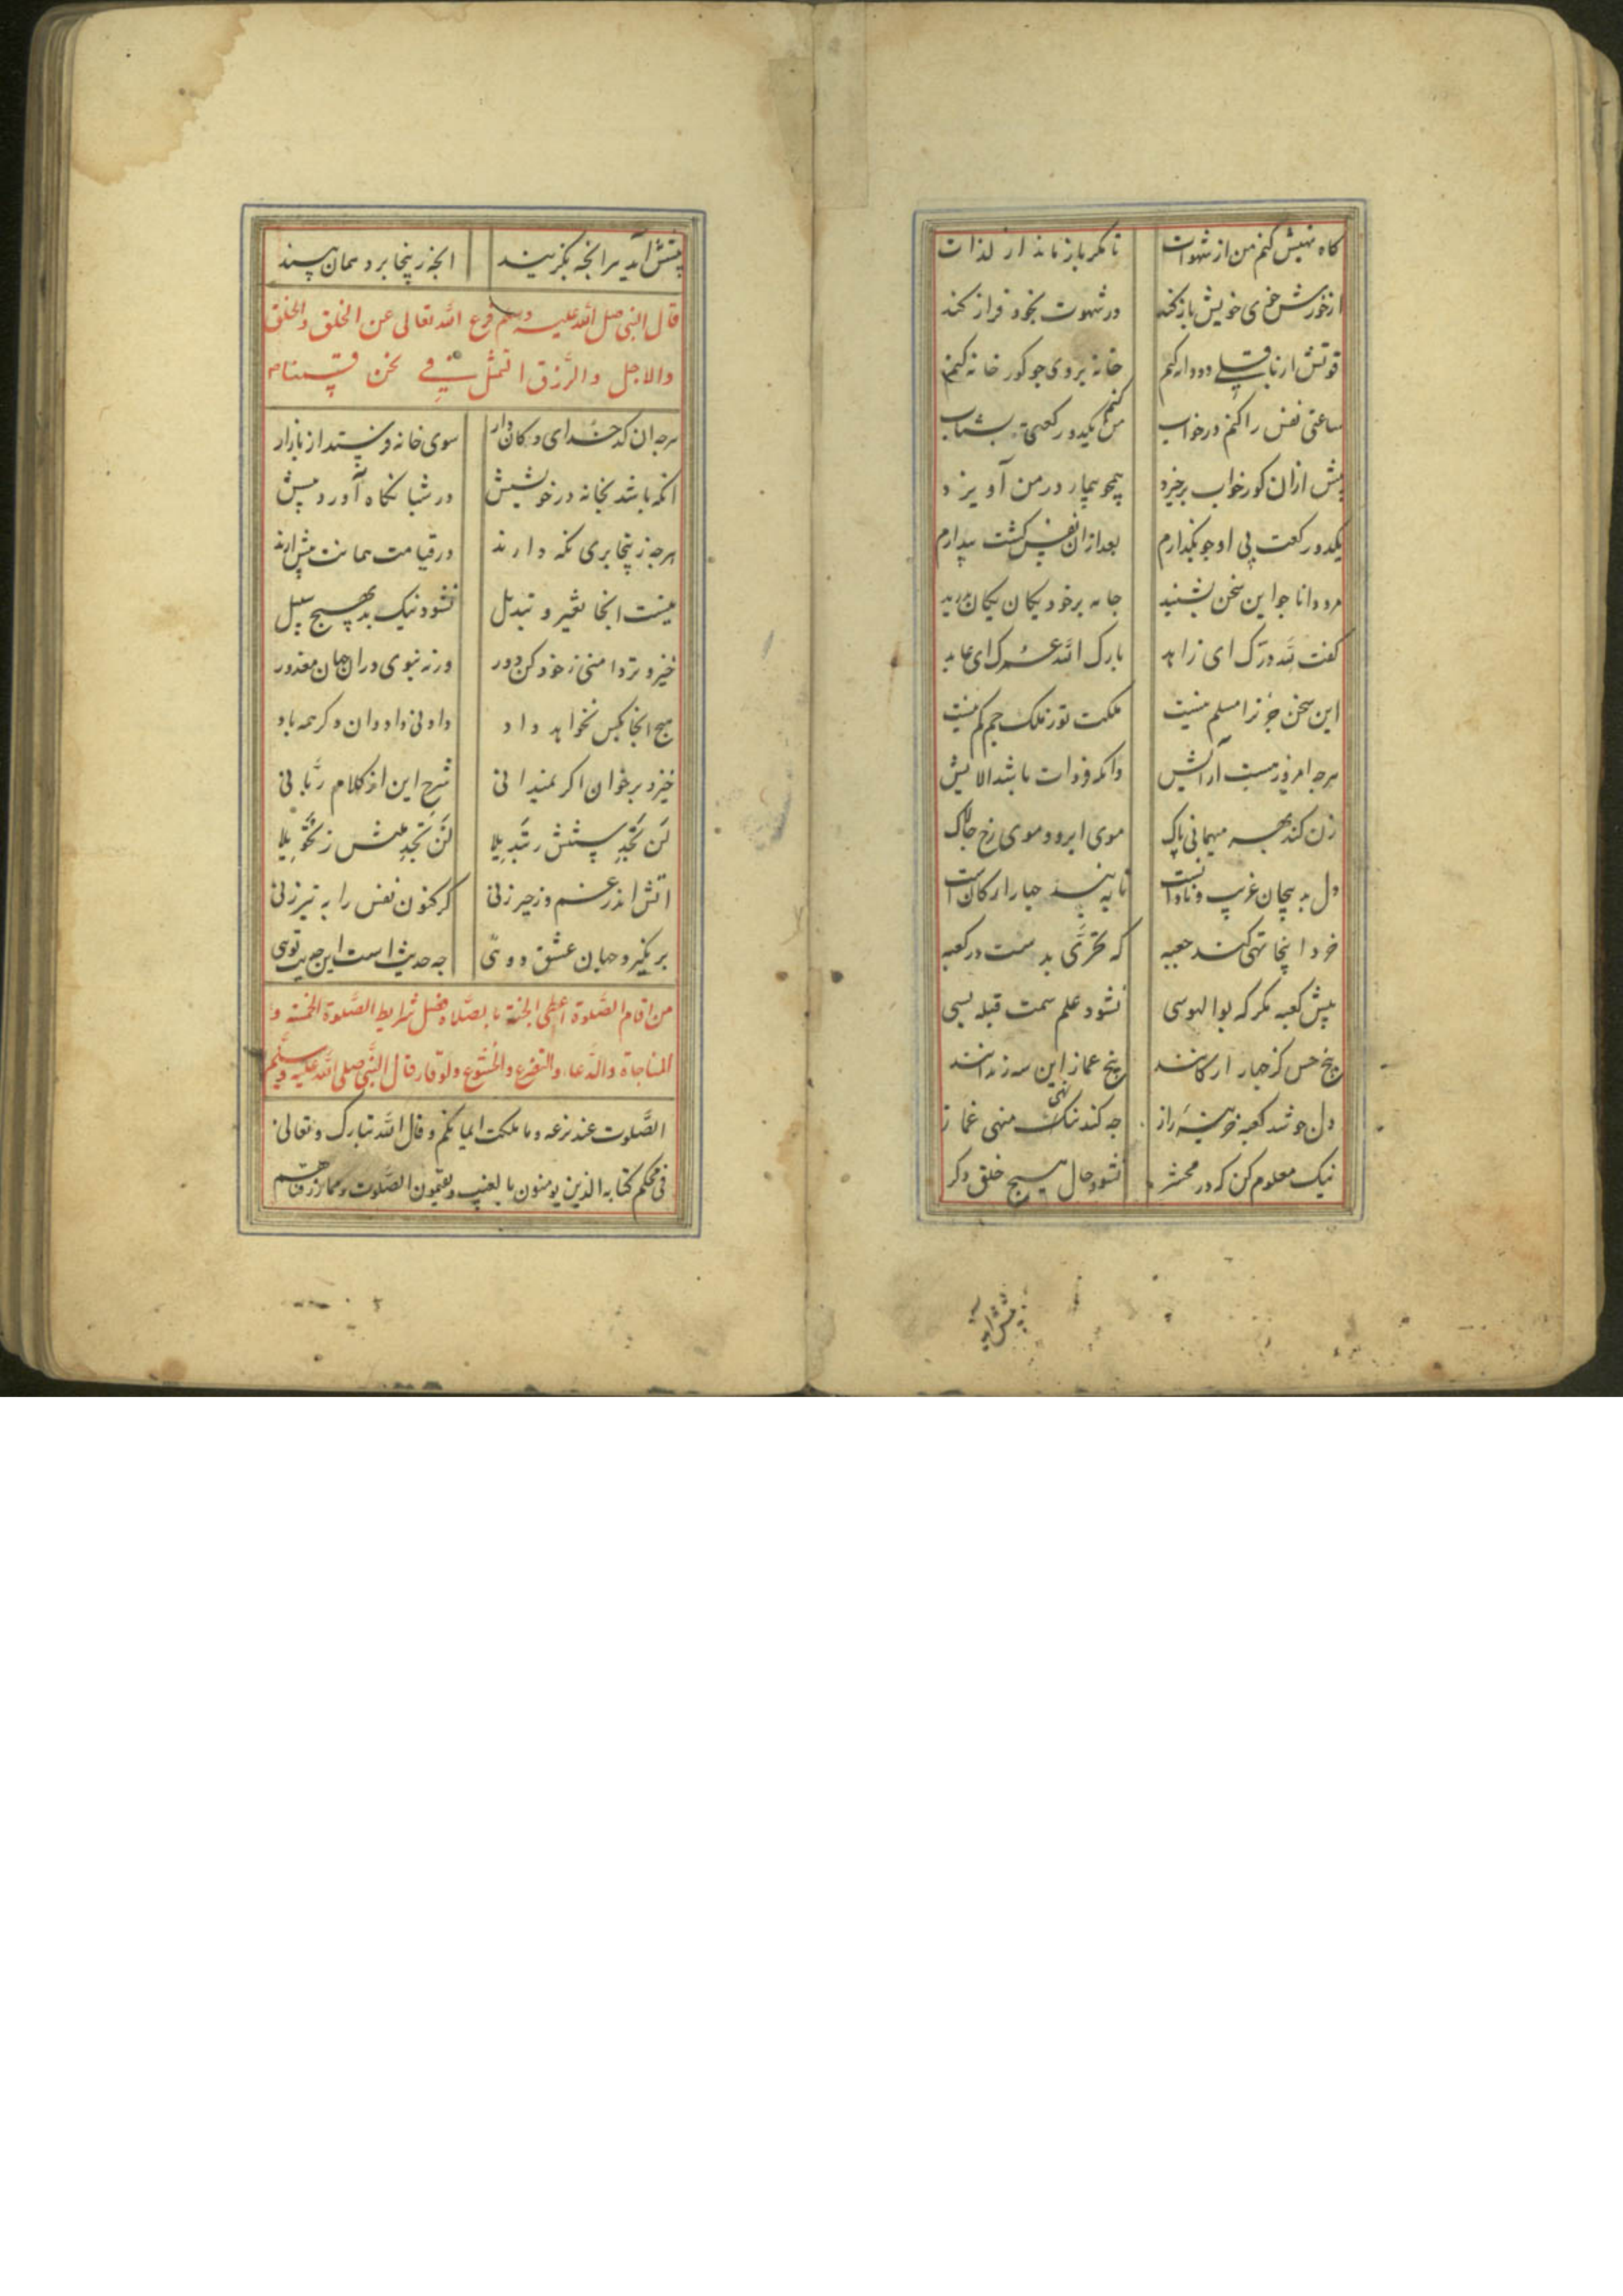 کاه نهیش کنم من از شهوات تا مکر باز ماند از لذات
از خورش خوی خویش باز کند در شهوت بخود فراز کند
قوتش از باقلی دو دانه کنم خانه بروی جو کور خانه کنم
ساعتی نفس را کنم در خواب من کنم یکدو رکعتی بشتاب
پیش از ان کو ز خواب برخیزد همجو بیمار در من آویزد
یکدو رکعت بی او جو بکذارم بعد از ان نفس کشت بیدارم
مرد دانا جو این سخن بشنید جامه بر خود یکان یکان بدرید
کفت لله درک ای زاهد بارک الله عمرک ای عابد
این سخن جز ترا مسلم نیست ملکت تو ز ملک جم کم نیست
هرجه امروز هست آرایش دانکه فردات باشد الایش
زن کند بهر میهمانی پاک موی ابرو و موی رخ جالاک
دل به بیجان غریب و نادانست تا به بند جهار ارکانست
خرد اینجا تهی کند جعبه که تحری بدست در کعبه
پیش کعبه مکر که بوالهوسی نشود علم سمت قبله بسی
پنج حس کز جهار ارکانند پنج غماز این سه زندانند
دل جو شد کعبه خزینه راز جه کند ننک منهی غماز
نهی
نیک معلوم کن که در محشر نشود حال هیج خلق دکر
پیش اید
پیشش آید هر انجه بکزیند انجه زینجا برد همان بیند
قال النبی صلی الله علیه وسلم فرغ الله تعالی عن الخلق والخلق
والاجل والرزق التمثل فی نحن قسمنا
هرجه ان کدخدای دکان دار سوی خانه فرستد از بازار
انکه باشد بخانه در خویشش در شبانکاه آورد پیش
هرجه زینجا بری نکه دارند در قیامت همانت پیش ارند
نیست انجا تغییر و تبدیل نشود نیک بد بهیج سبیل
خیز و تردامنی ز خود کن دور ورنه نبوی در ان جهان معذور
هیج انجا بکس نخواهد داد داونی داد دان و کر همه باد
خیز و برخوان اکر نمیدانی شرح این از کلام ربانی
لن تجد سنتش ز تبدیلا لن تجد ملتش ز تحویلا
اتش اندر غم و زحیر زنی کر کنون نفس را به تیر زنی
بر نکیرد جهان عشق دوئی جه حدیث است این حدیث توی
من اقام الصلوة اعطی الجنة بالصلاة فصل شرایط الصلوة الخمسة و
المناجاة والدعاء والتضرع والخشوع والوقار قال النبی صلی الله علیه وسلم
الصلوت عند نزعه وما ملکت ایمانکم وقال الله تبارک وتعالی
فی محکم کتابه الذین یومنون بالغیب ویقیمون الصلوت ومما رزقناهم